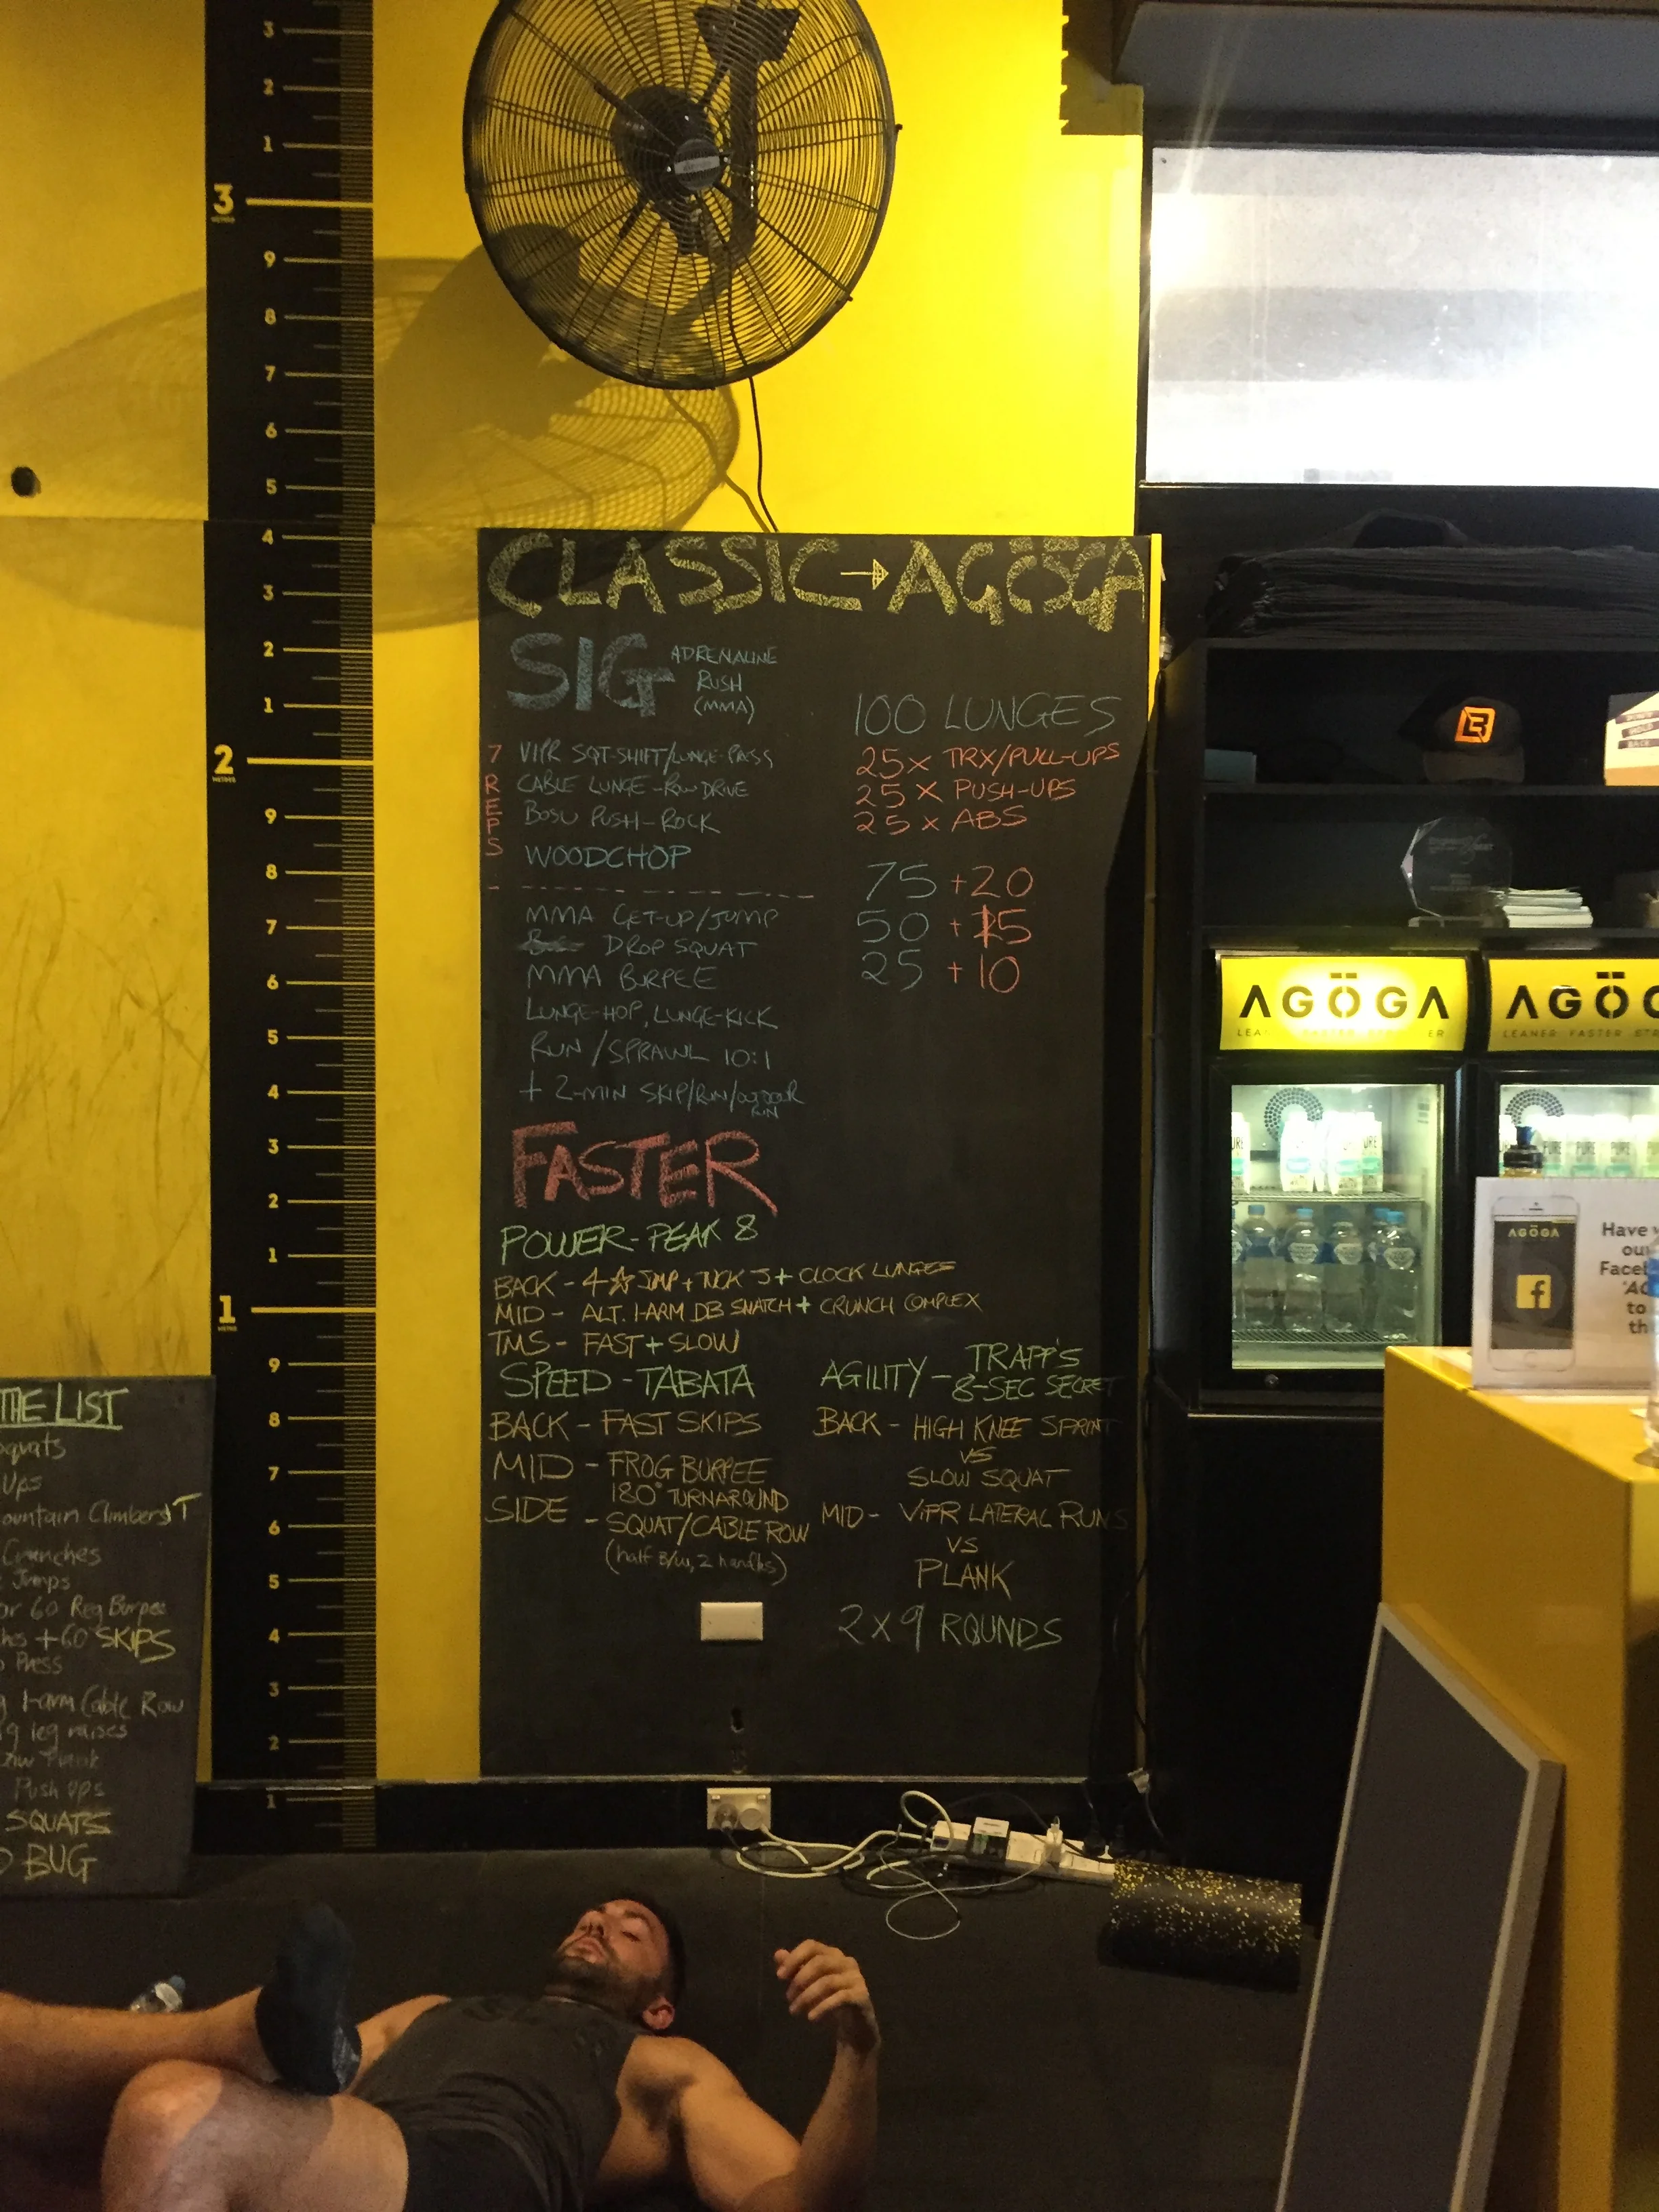 3
2
1
3
METRES
9
8
7
6
5
4
3
2
1
2
METRES
9
8
7
6
5
4
3
2
1
1
METRE
9
8
7
6
5
4
3
2
1
CLASSIC → AGÖGA
SIG ADRENALINE
RUSH
(MMA)
7 REPS
VIPR SQT-SHIFT/LUNGE-PASS
CABLE LUNGE-ROW DRIVE
BOSU PUSH-ROCK
WOODCHOP
MMA GET-UP/JUMP
DROP SQUAT
MMA BURPEE
LUNGE-HOP, LUNGE-KICK
RUN/SPRAWL 10:1
+ 2-MIN SKIP/RUN/OUTDOOR
RUN
100 LUNGES
25x TRX/PULL-UPS
25 x PUSH-UPS
25 x ABS
75 +20
50 +15
25 +10
FASTER
POWER-PEAK 8
BACK - 4 ☆ JMP + TUCK J + CLOCK LUNGES
MID - ALT. 1-ARM DB SNATCH + CRUNCH COMPLEX
TMS - FAST + SLOW
SPEED - TABATA
BACK - FAST SKIPS
MID - FROG BURPEE
180° TURNAROUND
SIDE - SQUAT/CABLE ROW
(half B/W, 2 handles)
AGILITY - TRAPP'S
8-SEC SECRET
BACK - HIGH KNEE SPRINT
VS
SLOW SQUAT
MID - ViPR LATERAL RUNS
VS
PLANK
2 x 9 ROUNDS
THE LIST
squats
Ups
ountain Climbers T
Crunches
Jumps
or 60 Reg Burpee
hes +60 SKIPS
Press
1-arm Cable Row
leg raises
Push ups
SQUATS
BUG
AGÖGA
LEA ER
AGÖG
LEANER FASTER STR
PURE
PURE
PURE
AGÖGA
f
Have
ou
Faceb
'AG
to
th